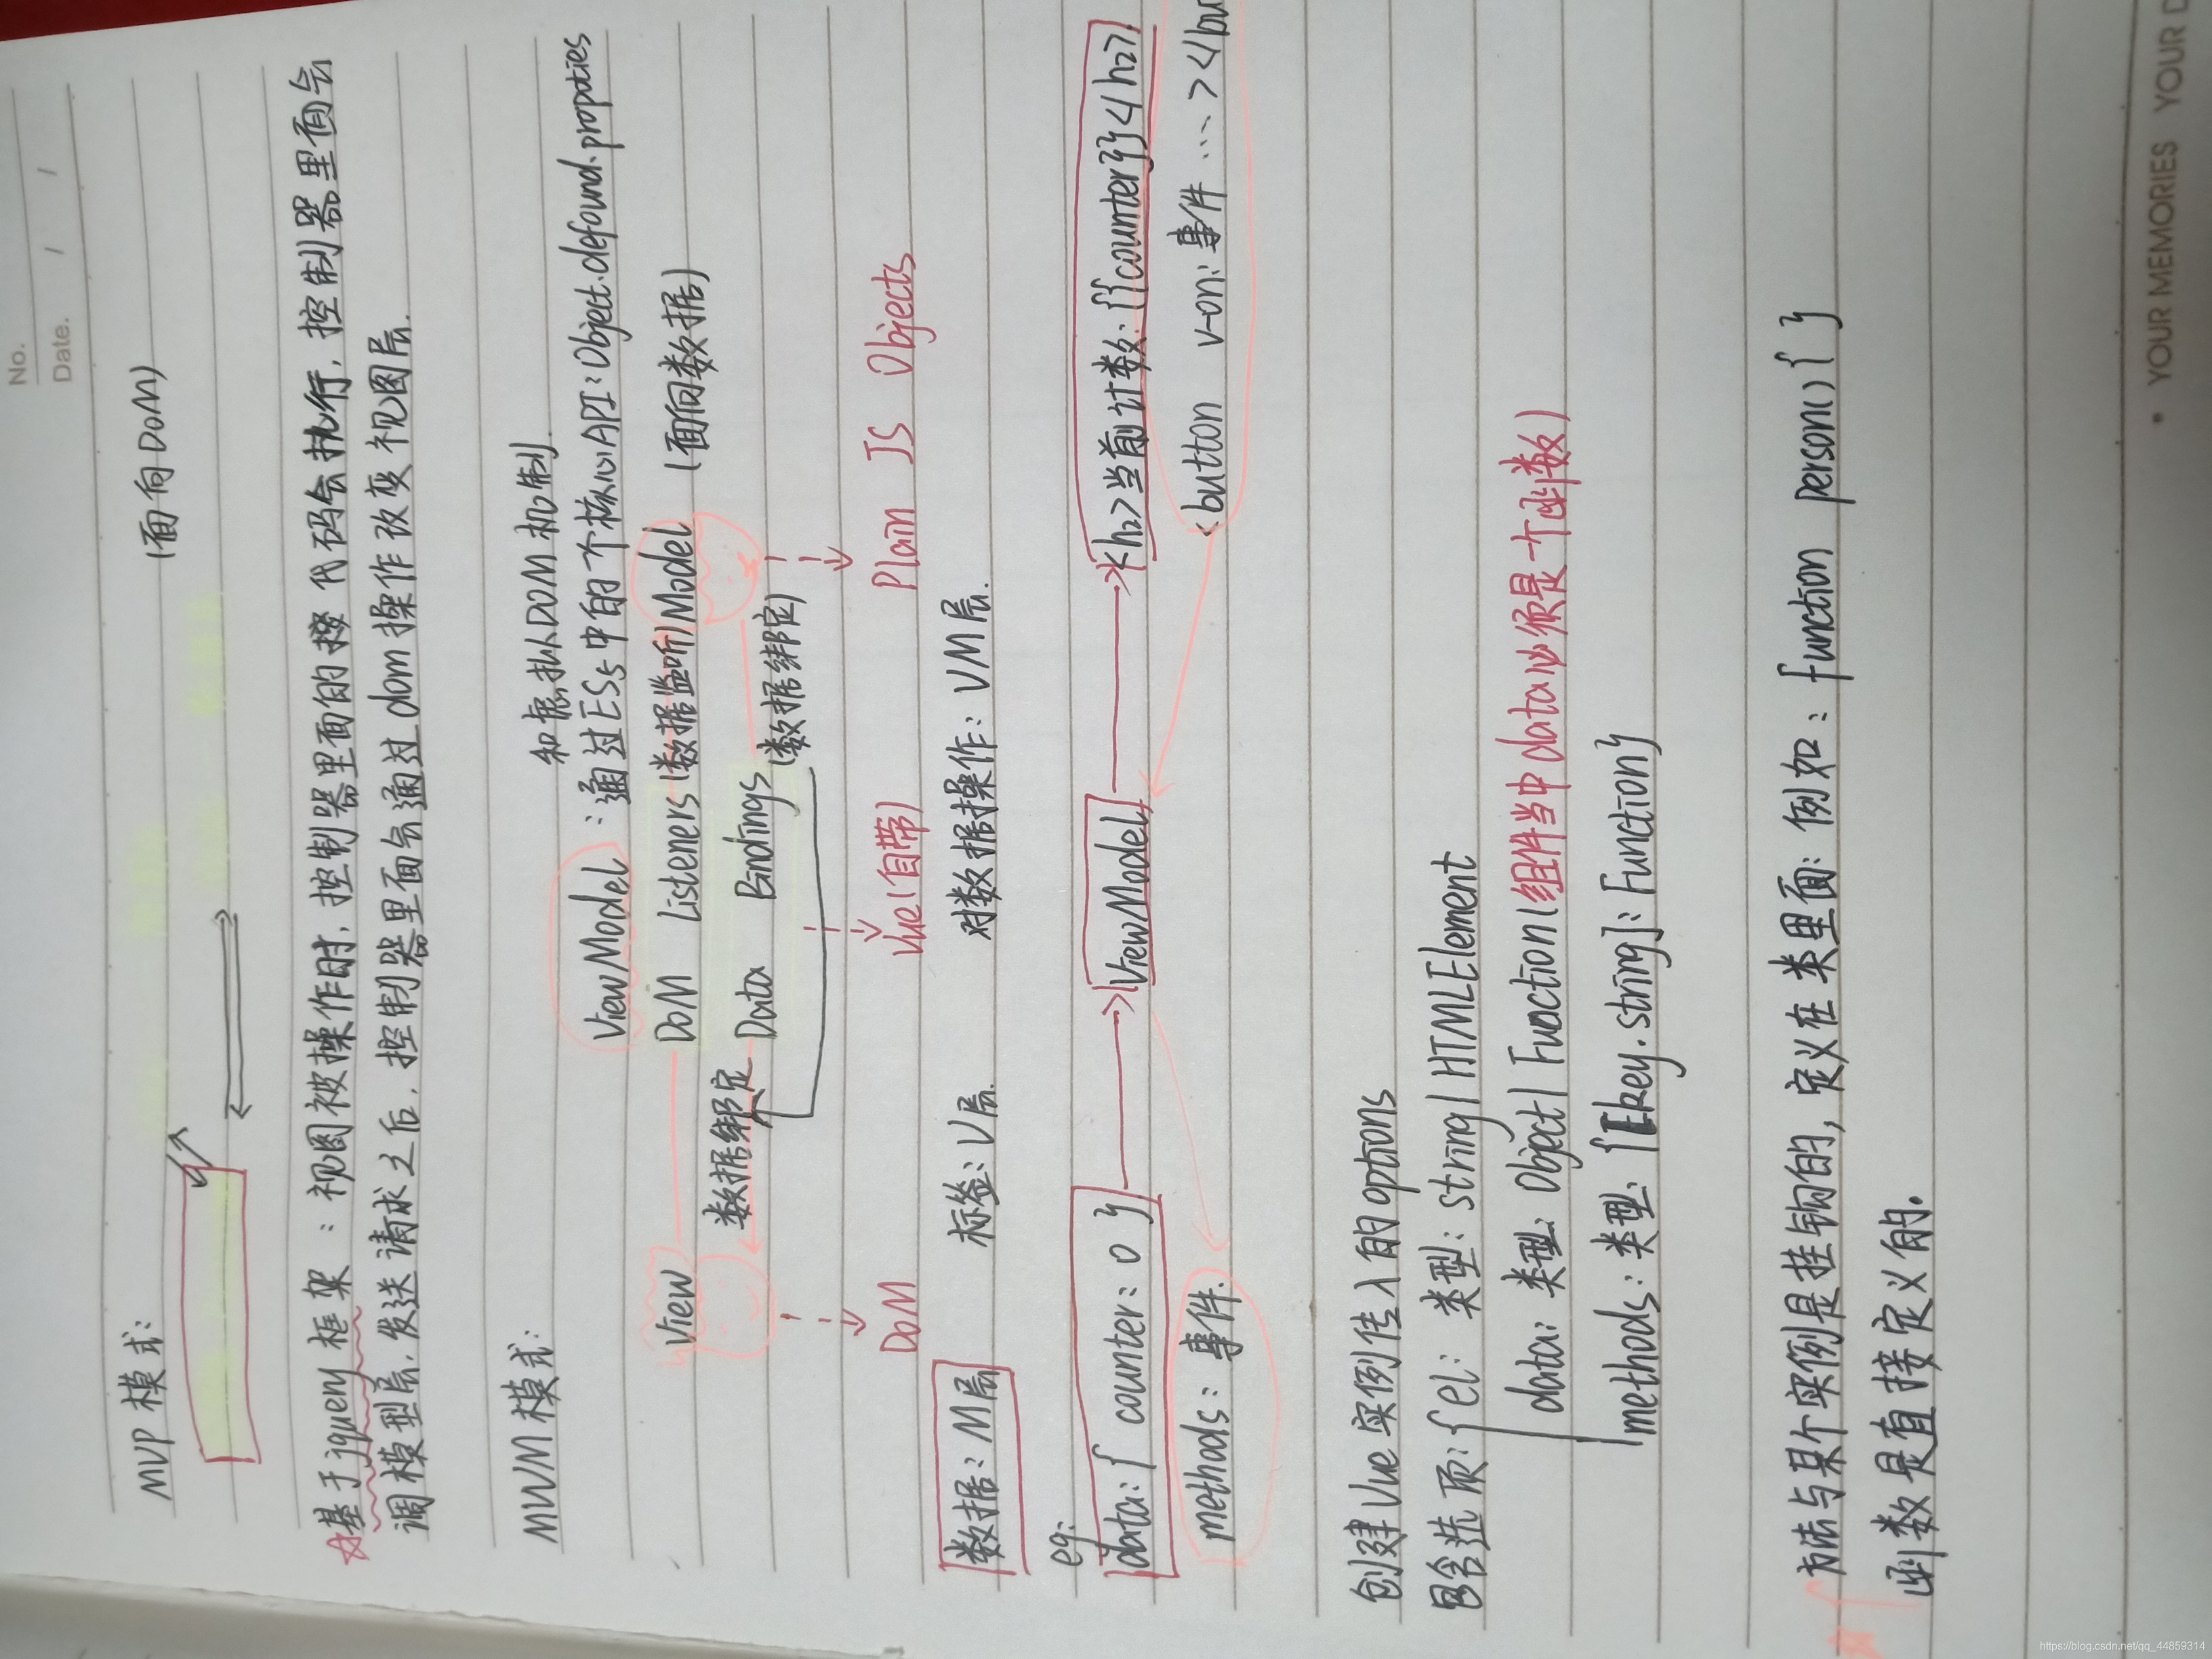 No.
Date. / /
MVP 模式:
(面向DOM)
☆基于jquery框架 : 视图被操作时, 控制器里面的 代码会执行, 控制器里面会
调模型层, 发送请求之后, 控制器里面会通过dom操作改变视图层.
MVVM模式:
和虚拟DOM机制.
ViewModel : 通过ES5中的一个核心API: Object.defound.propoties
View DOM Listeners (数据监听) Model (面向数据)
数据绑定 Data Bindings (数据绑定)
DOM Vue(自带) Plain JS Objects
数据: M层 标签: V层. 对数据操作: VM层.
eg:
data: { counter: 0 } ViewModel <h2>当前计数: {{counter}}</h2>
methods: 事件. <button v-on: 事件 ... ></bu
创建Vue实例传入的options
包含选项: { el: 类型: string | HTMLElement
data: 类型: Object | Function (组件当中data必须是一个函数)
methods: 类型: {[key: string]: Function}
方法与某个实例是挂钩的, 定义在类里面: 例如: function person() { }
函数是直接定义的.
• YOUR MEMORIES YOUR D
https://blog.csdn.net/qq_44859314